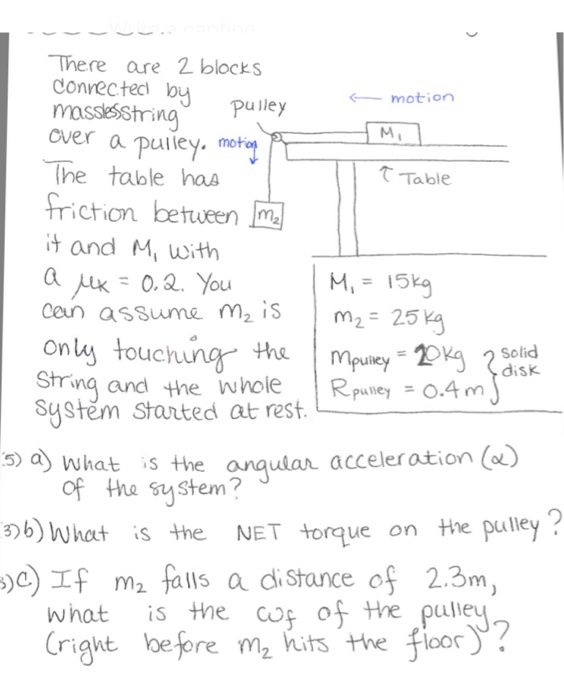 There are 2 blocks
connected by
massless string
over a pulley.
The table has
friction between
it and M₁ with
a μk = 0.2. You
can assume m₂ is
only touching the
string and the whole
system started at rest.
pulley
← motion
motion
M₁
↑ Table
m₂
M₁ = 15kg
m₂ = 25kg
Mpulley = 20kg } solid
Rpulley = 0.4m } disk
5) a) What is the angular acceleration (α)
of the system?
3) b) What is the NET torque on the pulley?
3) c) If m₂ falls a distance of 2.3m,
what is the ωf of the pulley
(right before m₂ hits the floor)?